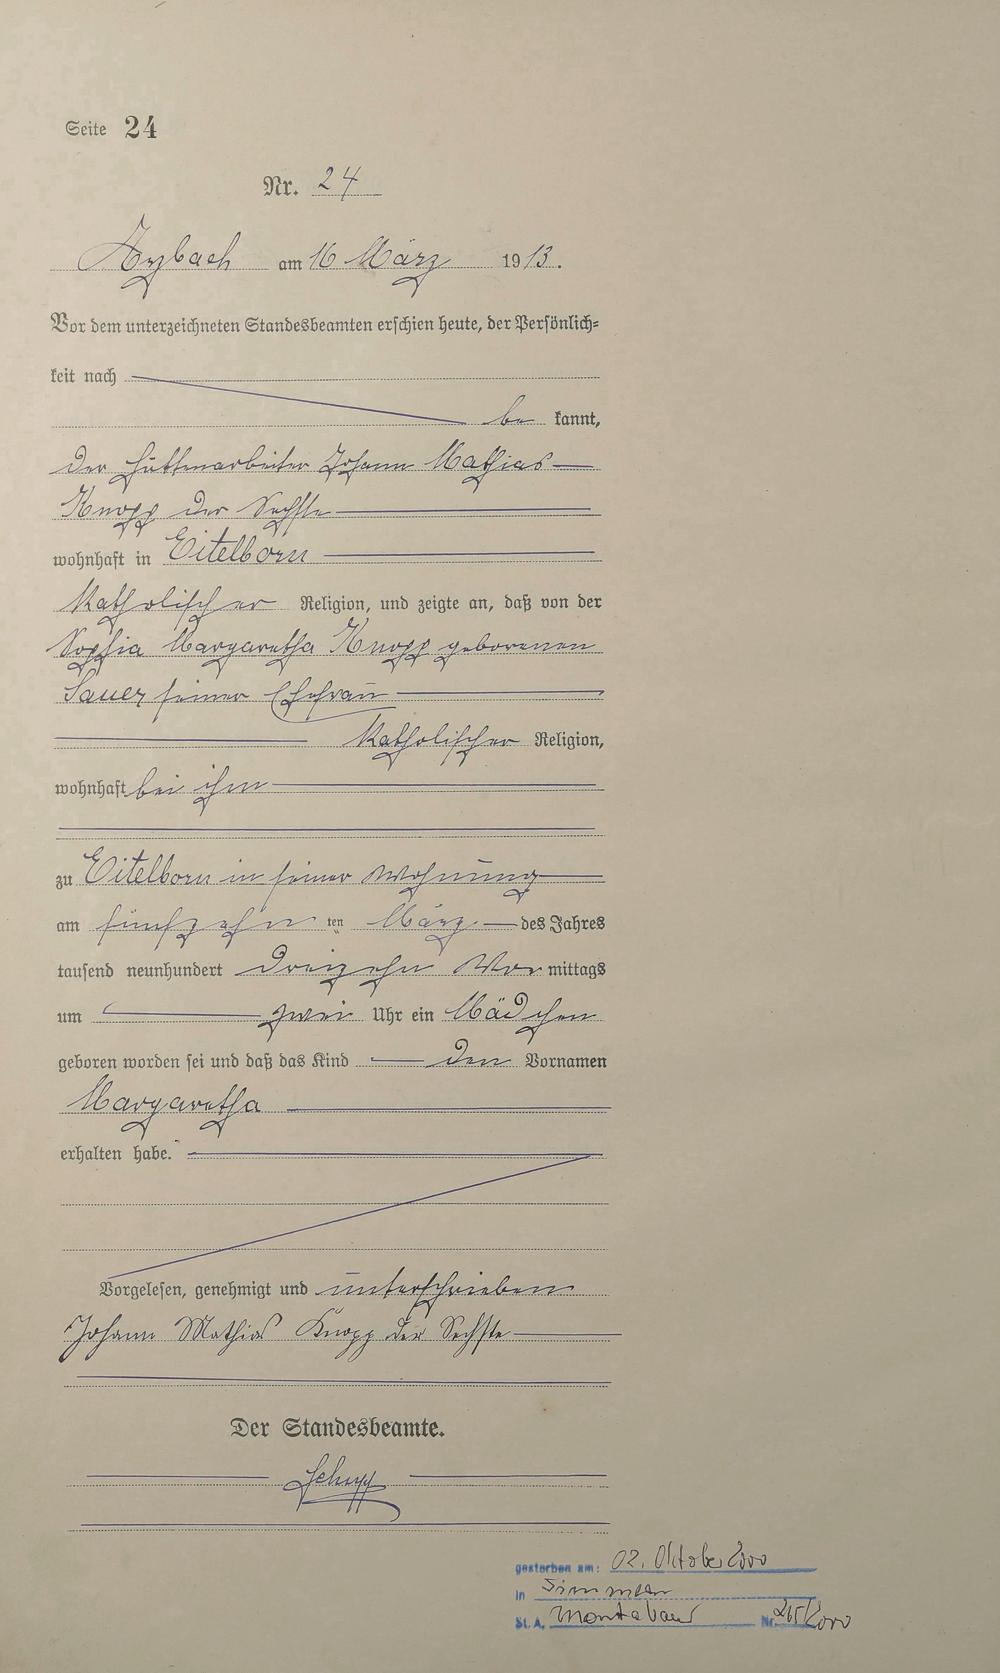 Seite 24
Nr. 24
Arzbach am 16 März 1913.
Vor dem unterzeichneten Standesbeamten erschien heute, der Persönlich=
keit nach
be kannt,
der Hüttenarbeiter Johann Mathias
Knopp der Sechste
wohnhaft in Eitelborn
katholischer Religion, und zeigte an, daß von der
Sophia Margaretha Knopp geborenen
Sauer seiner Ehefrau
katholischer Religion,
wohnhaft bei ihm
zu Eitelborn in seiner Wohnung
am fünfzehn ten März des Jahres
tausend neunhundert dreizehn Vor mittags
um zwei Uhr ein Mädchen
geboren worden sei und daß das Kind den Vornamen
Margaretha
erhalten habe.
Vorgelesen, genehmigt und unterschrieben
Johann Mathias Knopp der Sechste
Der Standesbeamte.
gestorben am: 02. Oktober 2000
in Simmern
St. A. Montabaur Nr. 215/2000